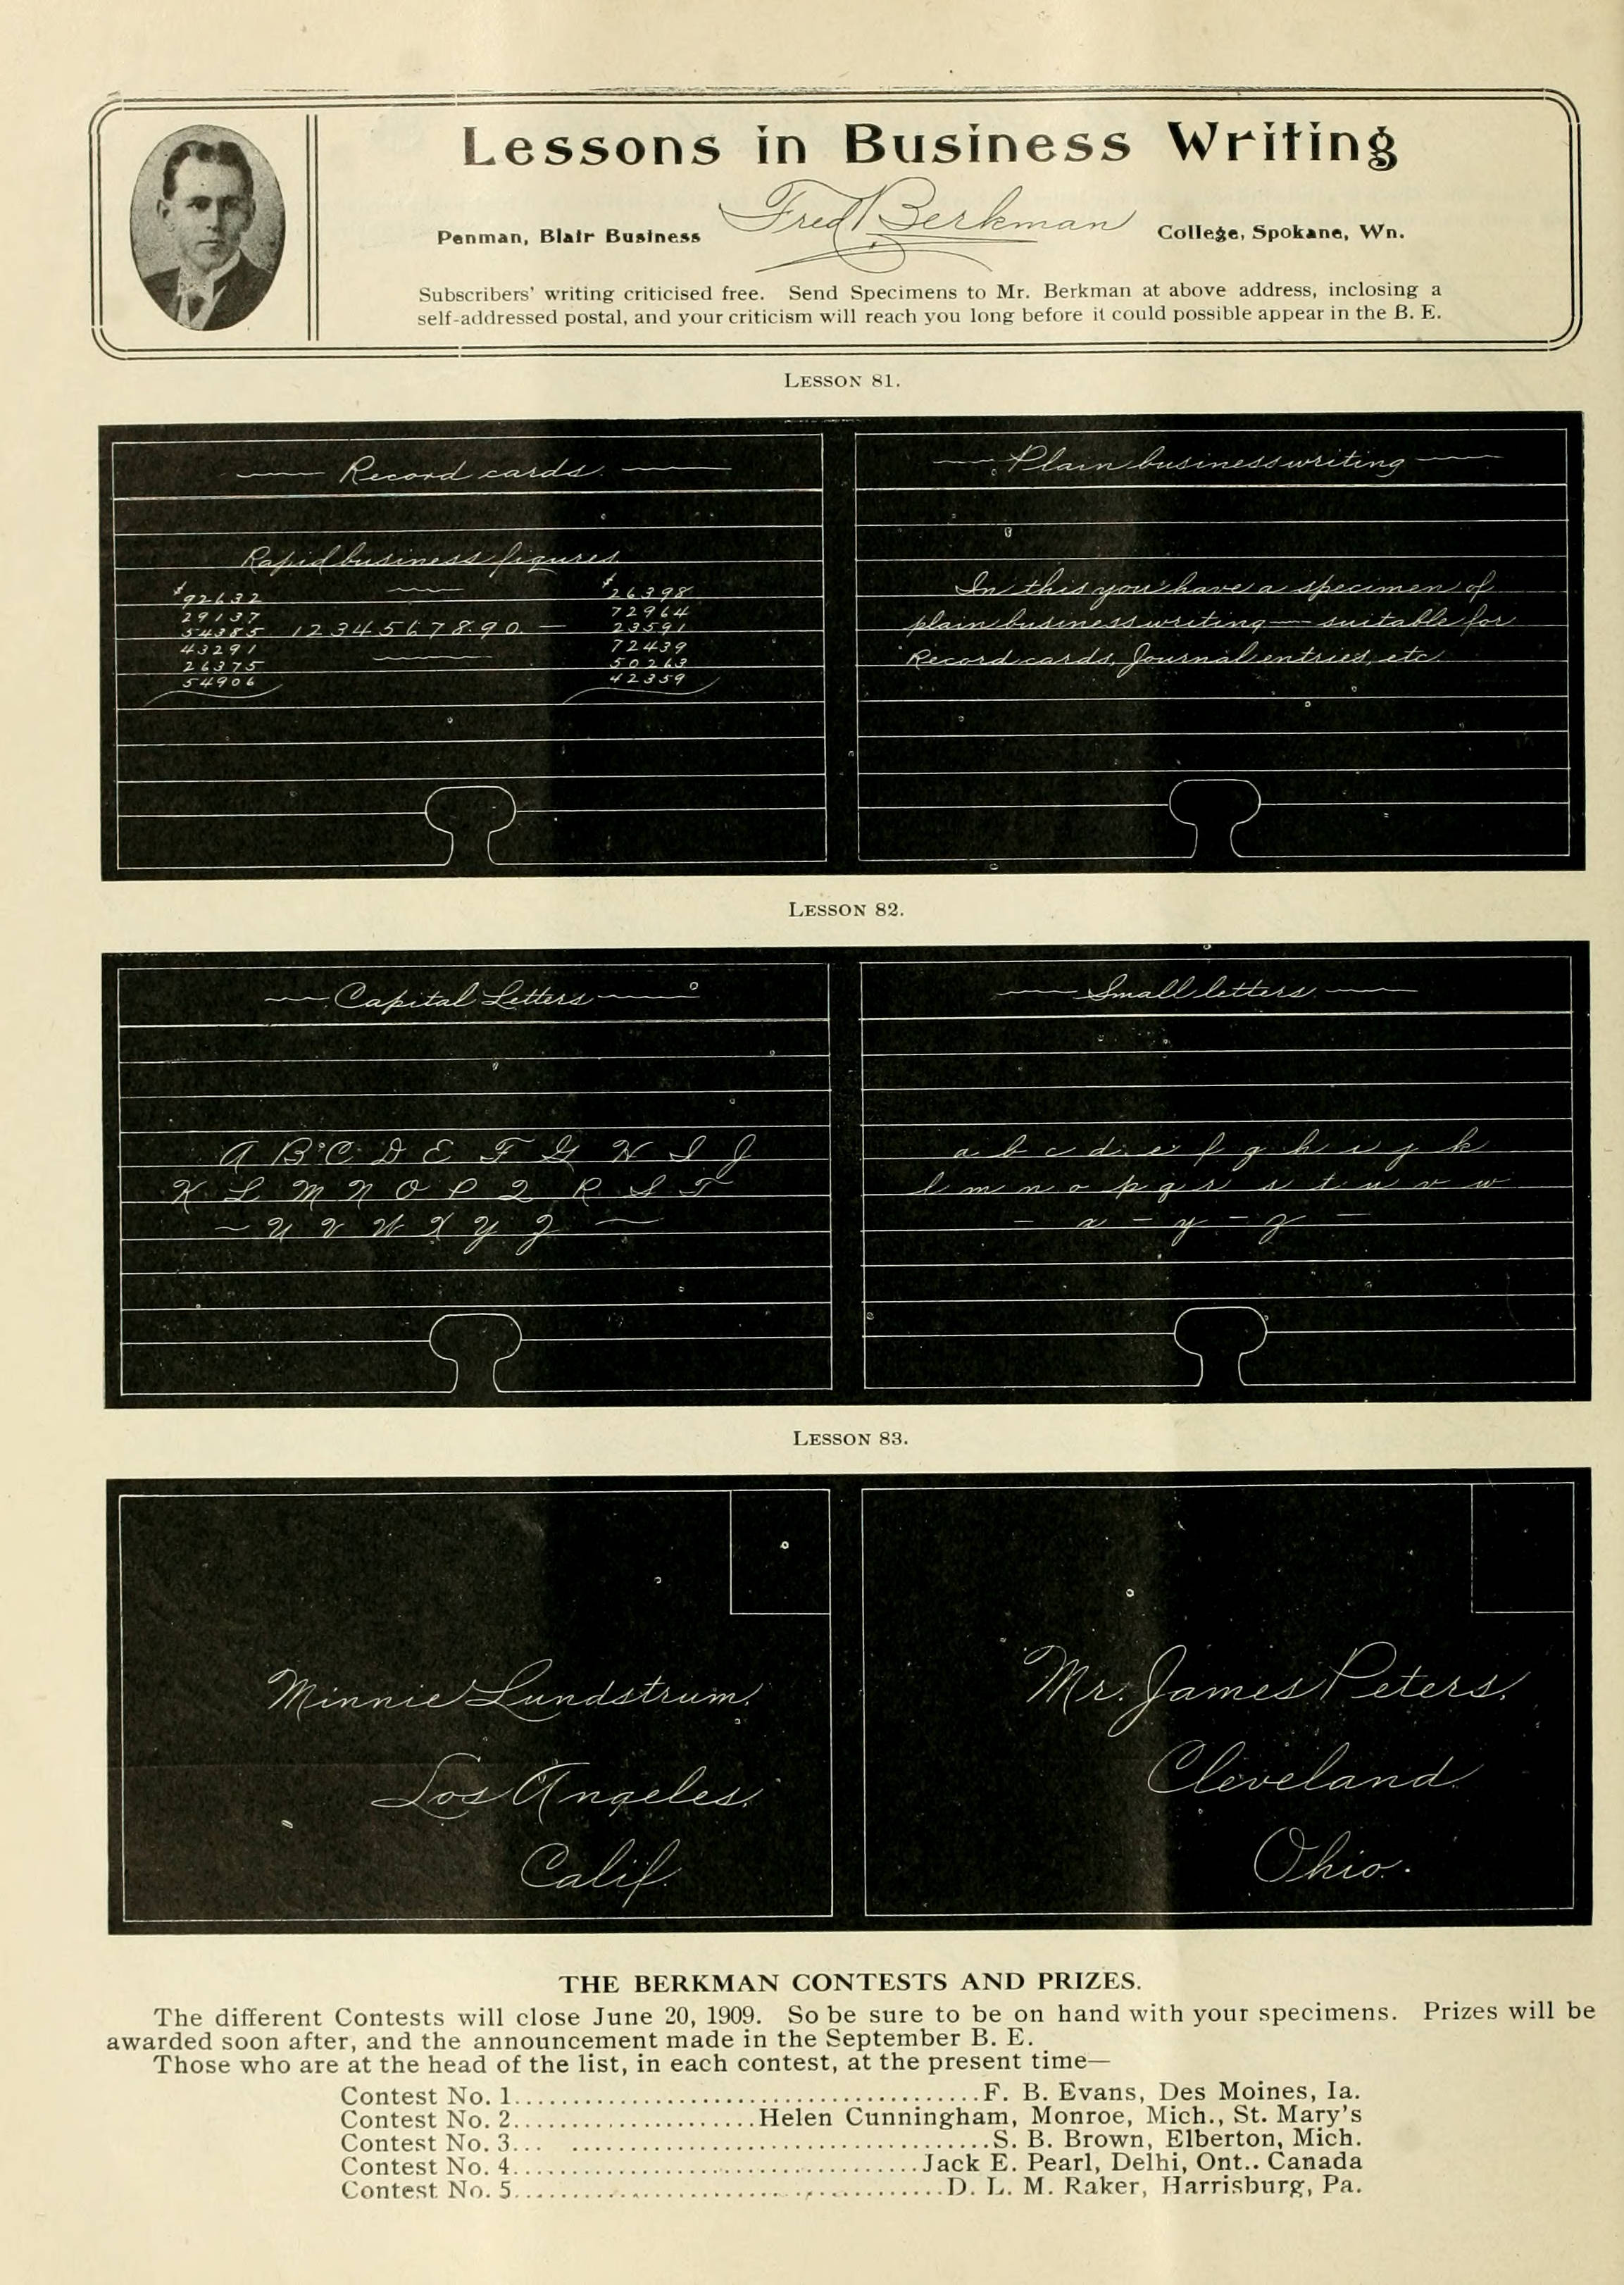 Lessons in Business Writing
Fred Berkman
Penman, Blair Business College, Spokane, Wn.
Subscribers' writing criticised free. Send Specimens to Mr. Berkman at above address, inclosing a
self-addressed postal, and your criticism will reach you long before it could possible appear in the B. E.
LESSON 81.
Record cards.
Rapid business figures.
$92632
29137
54385
43291
26375
54906
1 2 3 4 5 6 7 8 9 0
$26398
72964
23591
72439
50263
42359
Plain business writing
In this you have a specimen of
plain business writing — suitable for
Record cards, Journal entries, etc.
LESSON 82.
Capital Letters
A B C D E F G H I J
K L M N O P Q R S T
U V W X Y Z
Small letters
a b c d e f g h i j k
l m n o p q r s t u v w
x - y - z
LESSON 83.
Minnie Lundstrum.
Los Angeles.
Calif.
Mr. James Peters.
Cleveland.
Ohio.
THE BERKMAN CONTESTS AND PRIZES.
The different Contests will close June 20, 1909. So be sure to be on hand with your specimens. Prizes will be
awarded soon after, and the announcement made in the September B. E.
Those who are at the head of the list, in each contest, at the present time—
Contest No. 1.......................................F. B. Evans, Des Moines, Ia.
Contest No. 2.....................Helen Cunningham, Monroe, Mich., St. Mary's
Contest No. 3... ....................................S. B. Brown, Elberton, Mich.
Contest No. 4..................................Jack E. Pearl, Delhi, Ont.. Canada
Contest No. 5....................................D. L. M. Raker, Harrisburg, Pa.